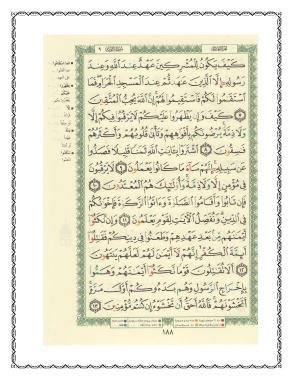 كَيْفَ يَكُونُ لِلْمُشْرِكِينَ عَهْدٌ عِندَ اللَّهِ وَعِندَ
رَسُولِهِ إِلَّا الَّذِينَ عَاهَدتُّمْ عِندَ الْمَسْجِدِ الْحَرَامِ فَمَا
اسْتَقَامُوا لَكُمْ فَاسْتَقِيمُوا لَهُمْ إِنَّ اللَّهَ يُحِبُّ الْمُتَّقِينَ
٧ كَيْفَ وَإِن يَظْهَرُوا عَلَيْكُمْ لَا يَرْقُبُوا فِيكُمْ إِلًّا
وَلَا ذِمَّةً يُرْضُونَكُم بِأَفْوَاهِهِمْ وَتَأْبَىٰ قُلُوبُهُمْ وَأَكْثَرُهُمْ
فَاسِقُونَ ٨ اشْتَرَوْا بِآيَاتِ اللَّهِ ثَمَنًا قَلِيلًا فَصَدُّوا
عَن سَبِيلِهِ إِنَّهُمْ سَاءَ مَا كَانُوا يَعْمَلُونَ ٩ لَا يَرْقُبُونَ
فِي مُؤْمِنٍ إِلًّا وَلَا ذِمَّةً وَأُولَٰئِكَ هُمُ الْمُعْتَدُونَ ١٠
فَإِن تَابُوا وَأَقَامُوا الصَّلَاةَ وَآتَوُا الزَّكَاةَ فَإِخْوَانُكُمْ
فِي الدِّينِ وَنُفَصِّلُ الْآيَاتِ لِقَوْمٍ يَعْلَمُونَ ١١ وَإِن نَّكَثُوا
أَيْمَانَهُم مِّن بَعْدِ عَهْدِهِمْ وَطَعَنُوا فِي دِينِكُمْ فَقَاتِلُوا
أَئِمَّةَ الْكُفْرِ إِنَّهُمْ لَا أَيْمَانَ لَهُمْ لَعَلَّهُمْ يَنتَهُونَ
١٢ أَلَا تُقَاتِلُونَ قَوْمًا نَّكَثُوا أَيْمَانَهُمْ وَهَمُّوا
بِإِخْرَاجِ الرَّسُولِ وَهُم بَدَءُوكُمْ أَوَّلَ مَرَّةٍ
أَتَخْشَوْنَهُمْ فَاللَّهُ أَحَقُّ أَن تَخْشَوْهُ إِن كُنتُم مُّؤْمِنِينَ ١٣
١٨٨